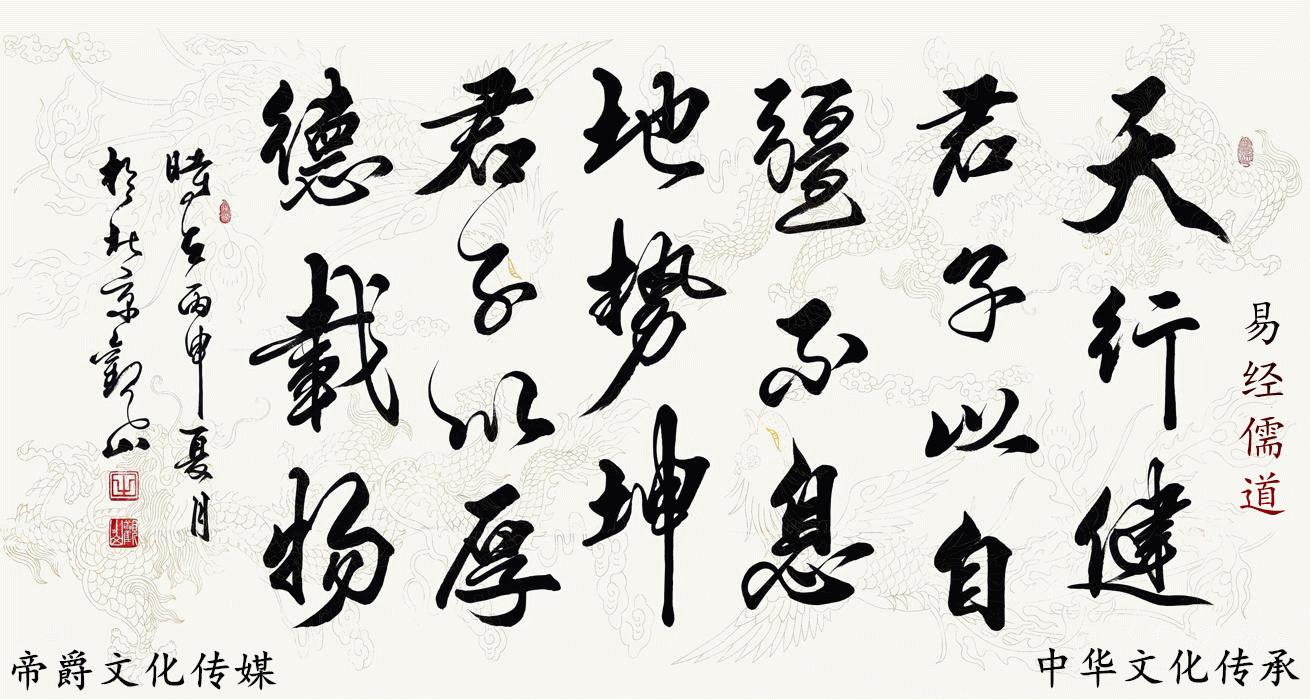 易经儒道
天行健
君子以自
彊不息
地势坤
君子以厚
德載物
時在丙申夏月
於北京觀山
中华文化传承
帝爵文化传媒